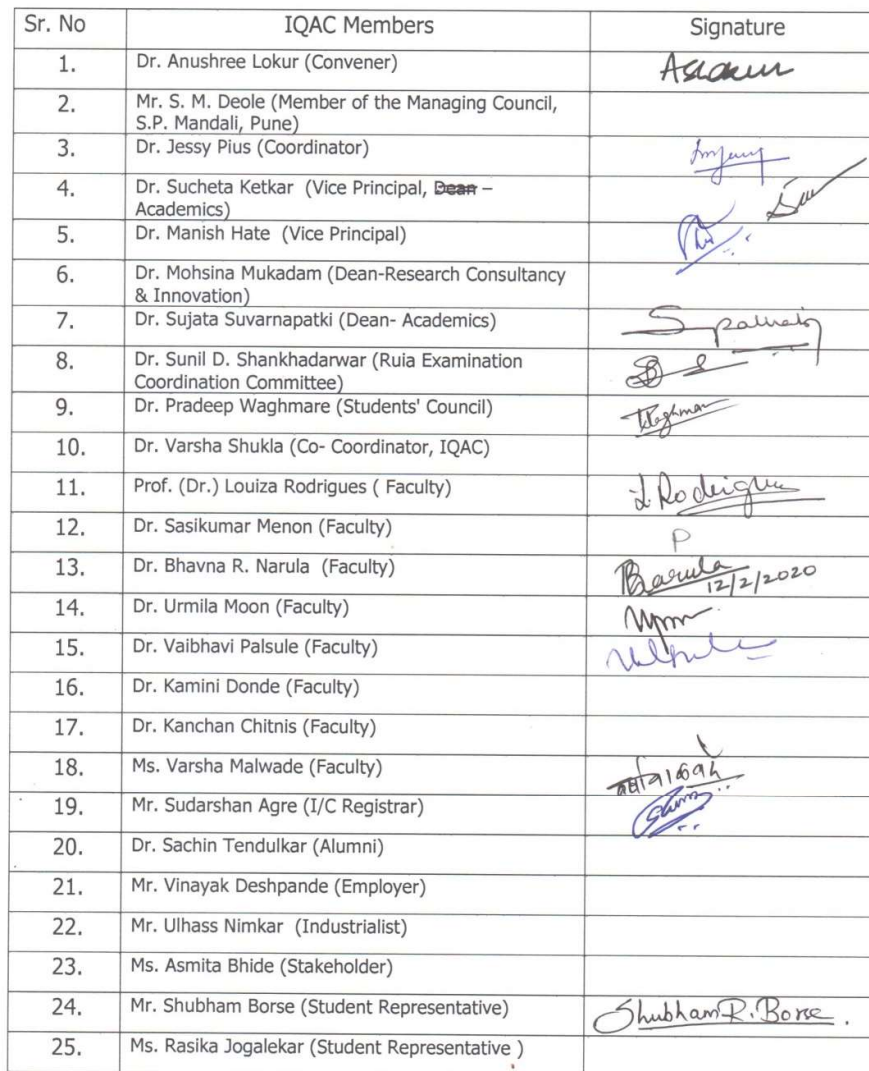 Sr. No IQAC Members Signature
1. Dr. Anushree Lokur (Convener)
2. Mr. S. M. Deole (Member of the Managing Council,
S.P. Mandali, Pune)
3. Dr. Jessy Pius (Coordinator)
4. Dr. Sucheta Ketkar (Vice Principal, Dean –
Academics)
5. Dr. Manish Hate (Vice Principal)
6. Dr. Mohsina Mukadam (Dean-Research Consultancy
& Innovation)
7. Dr. Sujata Suvarnapatki (Dean- Academics)
8. Dr. Sunil D. Shankhadarwar (Ruia Examination
Coordination Committee)
9. Dr. Pradeep Waghmare (Students' Council)
10. Dr. Varsha Shukla (Co- Coordinator, IQAC)
11. Prof. (Dr.) Louiza Rodrigues ( Faculty) L Rodrigues
12. Dr. Sasikumar Menon (Faculty) P
13. Dr. Bhavna R. Narula (Faculty) 12/2/2020
14. Dr. Urmila Moon (Faculty)
15. Dr. Vaibhavi Palsule (Faculty)
16. Dr. Kamini Donde (Faculty)
17. Dr. Kanchan Chitnis (Faculty)
18. Ms. Varsha Malwade (Faculty)
19. Mr. Sudarshan Agre (I/C Registrar)
20. Dr. Sachin Tendulkar (Alumni)
21. Mr. Vinayak Deshpande (Employer)
22. Mr. Ulhass Nimkar (Industrialist)
23. Ms. Asmita Bhide (Stakeholder)
24. Mr. Shubham Borse (Student Representative) Shubham R. Borse.
25. Ms. Rasika Jogalekar (Student Representative )